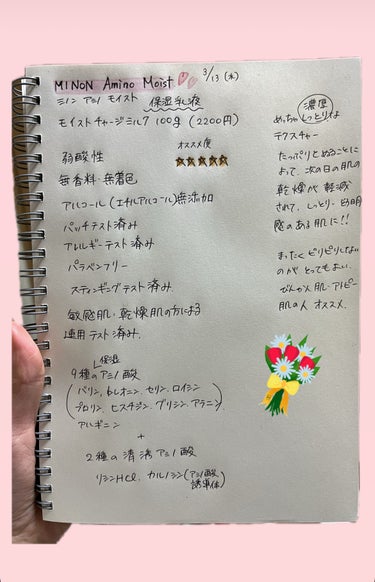 MINON Amino Moist
3/13 (木)
ミノン アミノ モイスト 保湿乳液
モイストチャージミルク 100g (2200円)
オススメ度
弱酸性
無香料・無着色
アルコール(エチルアルコール)無添加
パッチテスト済み
アレルギーテスト済み
パラベンフリー
スティンギングテスト済み
敏感肌・乾燥肌の方による
連用テスト済み.
保湿
9種のアミノ酸
(バリン、トレオニン、セリン、ロイシン
プロリン、ヒスチジン、グリシン、アラニン)
アルギニン
+
2種の清活アミノ酸
リシンHCl、カルノシン(アミノ酸
誘導体)
濃厚
めっちゃしっとりな
テクスチャー
たっぷりとぬることに
よって、次の日の肌の
乾燥が軽減
されて、しっとり・透明
感のある肌に!!
まったくピリピリしない
のがとってもよい、
びんかん肌・アトピー
肌の人オススメ.